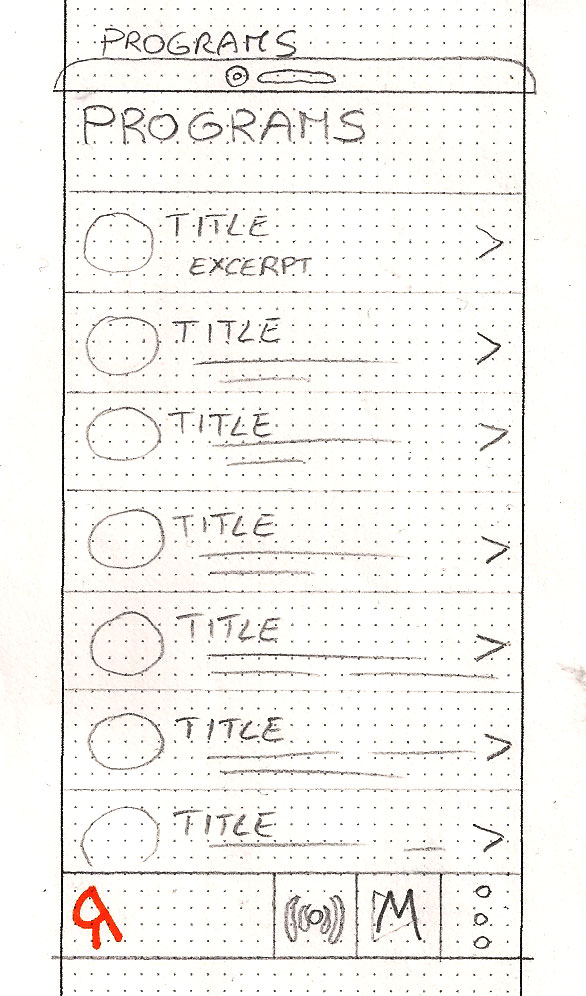 PROGRAMS
PROGRAMS
TITLE
EXCERPT
TITLE
TITLE
TITLE
TITLE
TITLE
TITLE
M